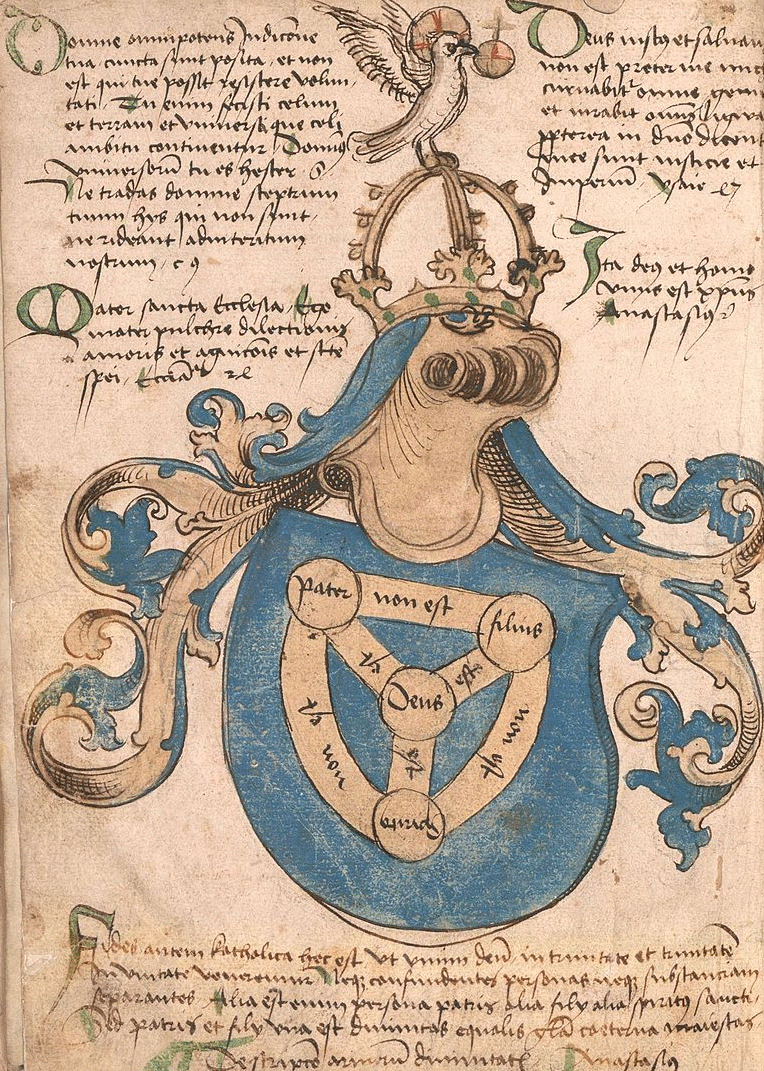 Domine omnipotens Indicione
tua cuncta sunt posita, et non
est qui tue possit resistere volun
tati. Tu enim fecisti celum
et terram et universi que celi
ambitu continentur Domi9
universorum tu es hester 8
Ne tradas domine sceptrum
tuum hys qui non sunt.
ne rideant ad interitum
nostrum. c 9
Mater sancta Ecclesia, Ego
mater pulchre dilectionis
amoris et agnicois et scte
spei.
Deus iustus et salvan
non est preter me
curvabit omne genu
et iurabit omnis ligwa
propterea in dno dicent
mee sunt iusticie et
Imperium. ysaie 47
Ita deus et homo
unus est xpus
Anastasius
Pater non est filius
est
Deus
est
est
est non
est non
spirit9
Fides autem katholica hec est ut unum deu in trinitate et trinitate
In unitate veneremur Neq confundentes personas neq substanciam
separantes Alia est enim persona patris alia filij alia spiritus sancti.
Sed patris et filij una est divinitas equalis gla coeterna maiestas.
Descripco armoru divinitatis Anastasi9